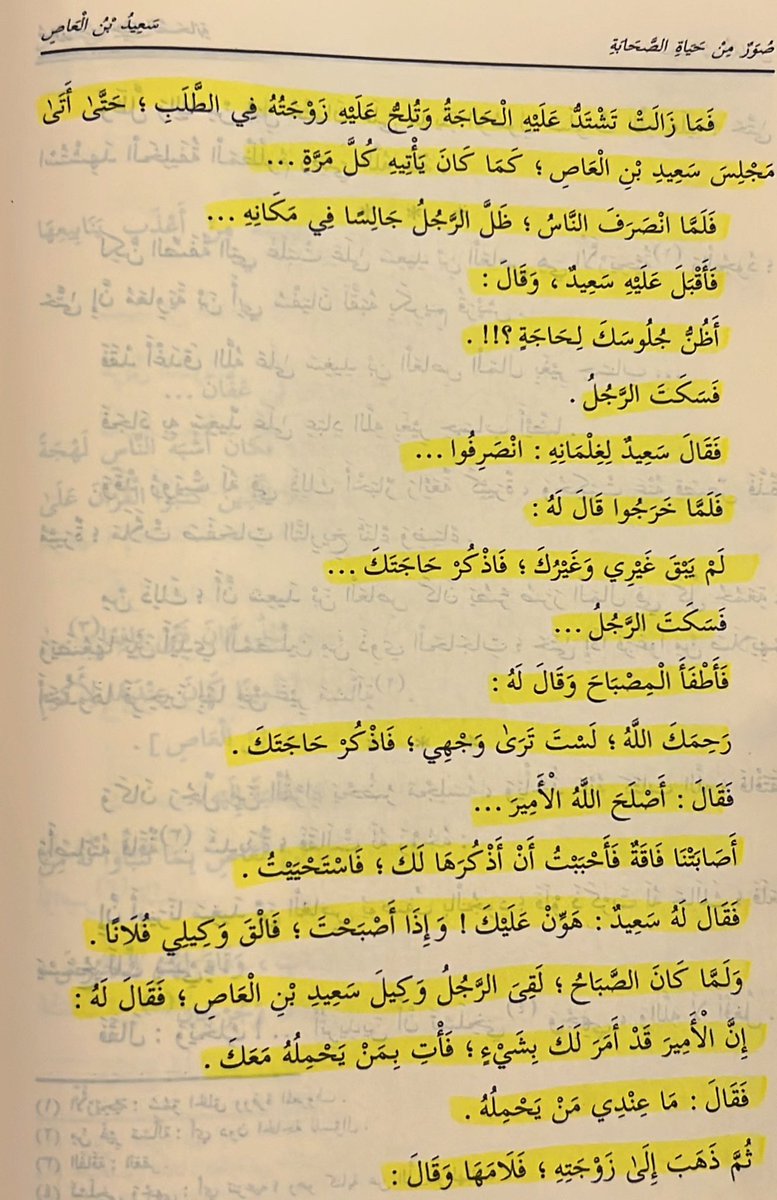 صُوَرٌ مِنْ حَيَاةِ الصَّحَابَةِ
سَعِيدُ بْنُ الْعَاصِ
فَمَا زَالَتْ تَشْتَدُّ عَلَيْهِ الْحَاجَةُ وَتُلِحُّ عَلَيْهِ زَوْجَتُهُ فِي الطَّلَبِ ؛ حَتَّىٰ أَتَىٰ
مَجْلِسَ سَعِيدِ بْنِ الْعَاصِ ؛ كَمَا كَانَ يَأْتِيهِ كُلَّ مَرَّةٍ ...
فَلَمَّا انْصَرَفَ النَّاسُ ؛ ظَلَّ الرَّجُلُ جَالِسًا فِي مَكَانِهِ ...
فَأَقْبَلَ عَلَيْهِ سَعِيدٌ ، وَقَالَ :
أَظُنُّ جُلُوسَكَ لِحَاجَةٍ ؟!! .
فَسَكَتَ الرَّجُلُ .
فَقَالَ سَعِيدٌ لِغِلْمَانِهِ : انْصَرِفُوا ...
فَلَمَّا خَرَجُوا قَالَ لَهُ :
لَمْ يَبْقَ غَيْرِي وَغَيْرُكَ ؛ فَاذْكُرْ حَاجَتَكَ ...
فَسَكَتَ الرَّجُلُ ...
فَأَطْفَأَ الْمِصْبَاحَ وَقَالَ لَهُ :
رَحِمَكَ اللَّهُ ؛ لَسْتَ تَرَىٰ وَجْهِي ؛ فَاذْكُرْ حَاجَتَكَ .
فَقَالَ : أَصْلَحَ اللَّهُ الْأَمِيرَ ...
أَصَابَتْنَا فَاقَةٌ فَأَحْبَبْتُ أَنْ أَذْكُرَهَا لَكَ ؛ فَاسْتَحْيَيْتُ .
فَقَالَ لَهُ سَعِيدٌ : هَوِّنْ عَلَيْكَ ! وَإِذَا أَصْبَحْتَ ؛ فَالْقَ وَكِيلِي فُلَانًا .
وَلَمَّا كَانَ الصَّبَاحُ ؛ لَقِيَ الرَّجُلُ وَكِيلَ سَعِيدِ بْنِ الْعَاصِ ؛ فَقَالَ لَهُ :
إِنَّ الْأَمِيرَ قَدْ أَمَرَ لَكَ بِشَيْءٍ ؛ فَأْتِ بِمَنْ يَحْمِلُهُ مَعَكَ .
فَقَالَ : مَا عِنْدِي مَنْ يَحْمِلُهُ .
ثُمَّ ذَهَبَ إِلَىٰ زَوْجَتِهِ ؛ فَلَامَهَا وَقَالَ :